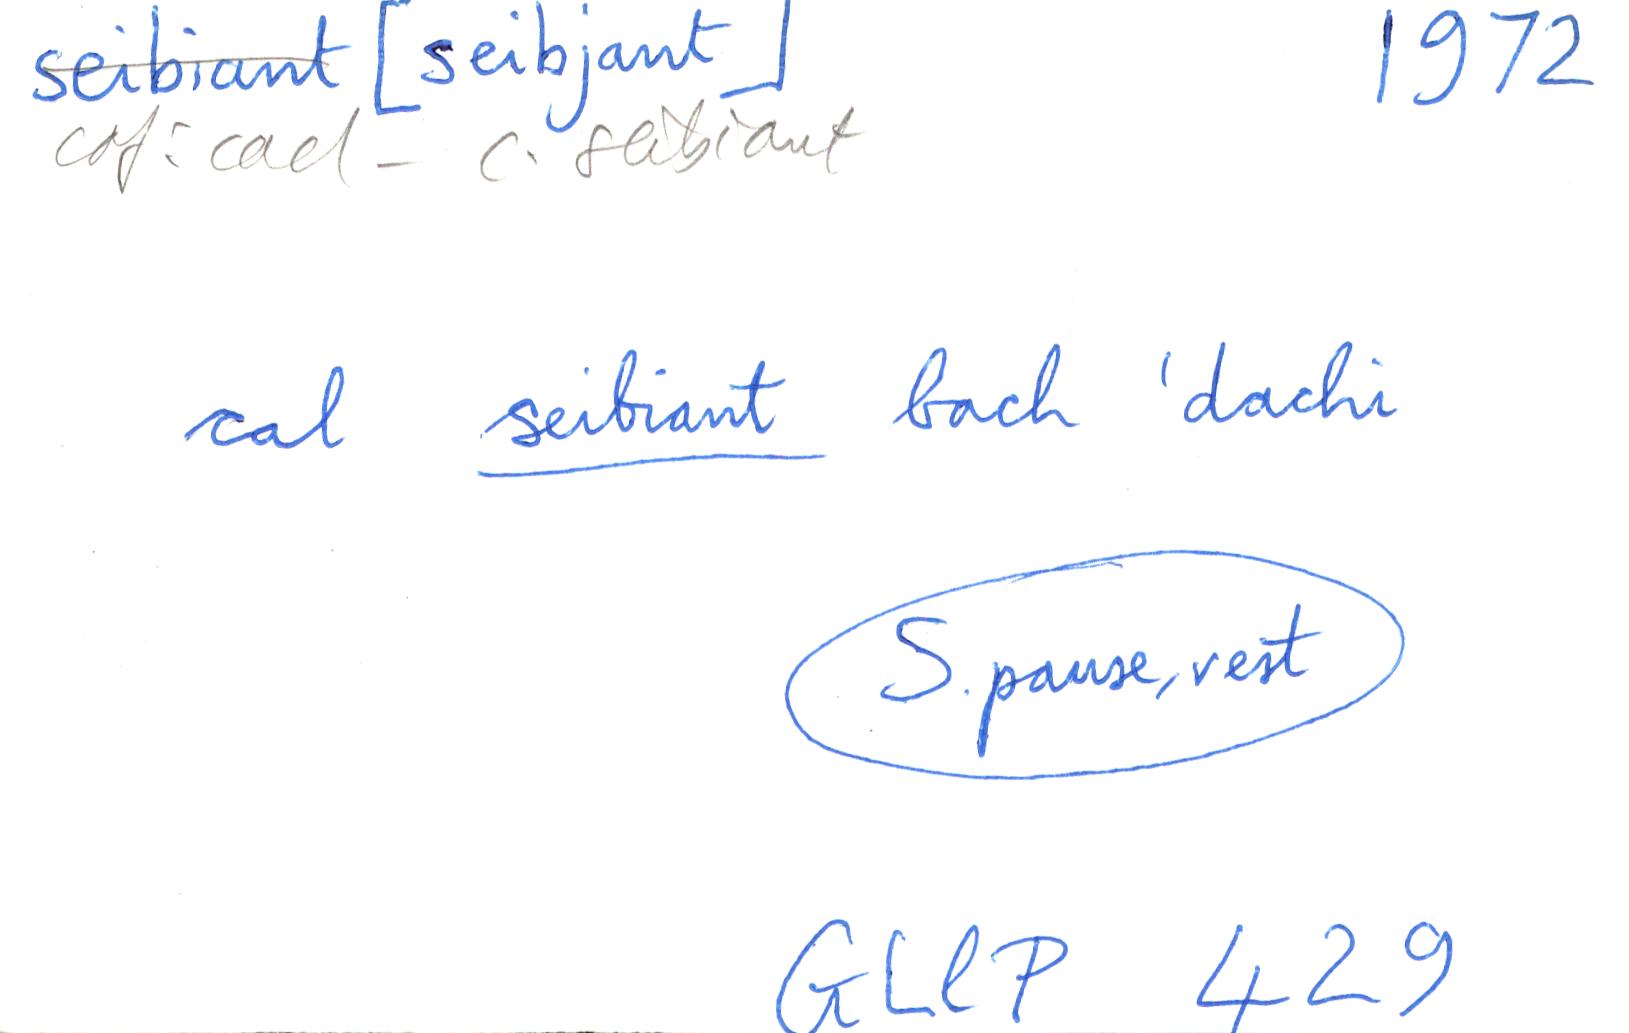 seibiant [seibjant] 1972
cof: cael - c. seibiant
cal seibiant bach 'dachi
S. pause, rest
GLlP 429